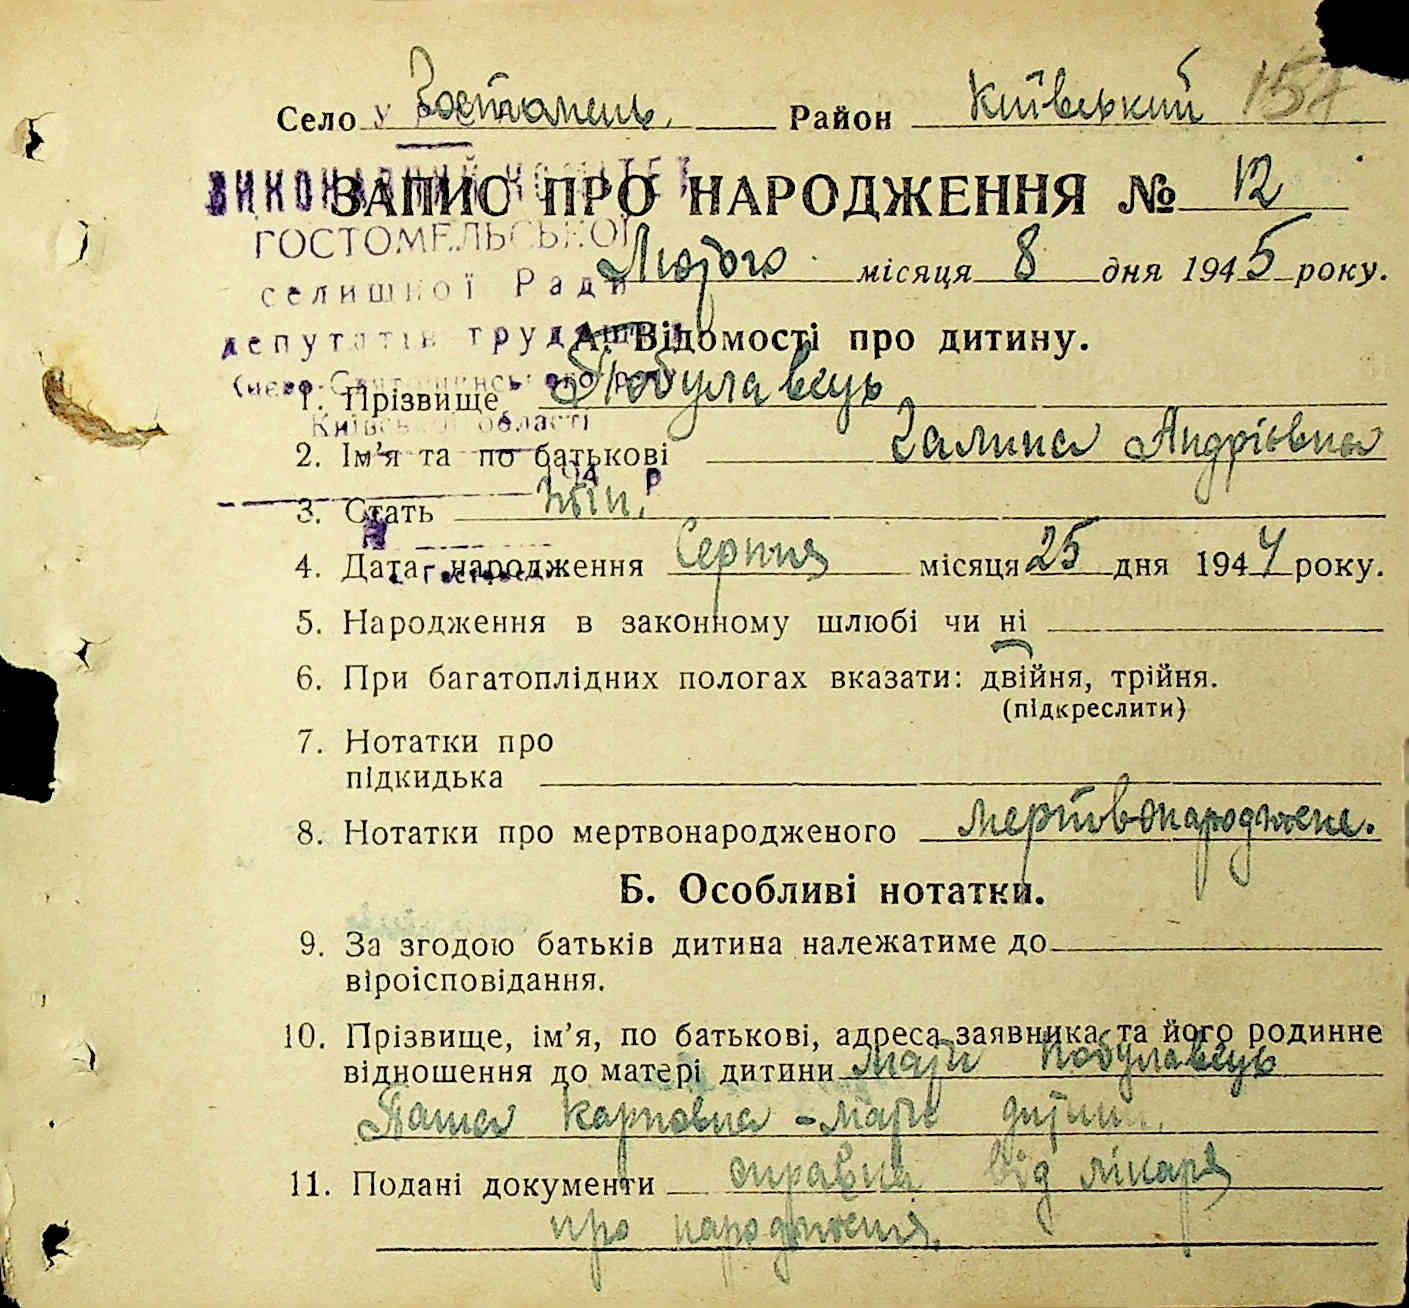 Село Гостомель Район Київський 157
ВИКОНАВЧИЙ КОМІТЕТ
ЗАПИС ПРО НАРОДЖЕННЯ № 12
ГОСТОМЕЛЬСЬКОЇ
Лютого місяця 8 дня 1945 року.
селишної Ради
депутатів трудящ
А. Відомості про дитину.
Києво-Святошинського р
1. Прізвище Побулавець
Київської області
2. Ім'я та по батькові Галина Андріївна
194 р
3. Стать жін.
4. Дата народження Серпня місяця 25 дня 1944 року.
5. Народження в законному шлюбі чи ні
6. При багатоплідних пологах вказати: двійня, трійня.
(підкреслити)
7. Нотатки про
підкидька
8. Нотатки про мертвонародженого мертвонароджене.
Б. Особливі нотатки.
9. За згодою батьків дитина належатиме до
віроісповідання.
10. Прізвище, ім'я, по батькові, адреса заявника та його родинне
відношення до матері дитини мати Побулавець
Паша Карповна - мати дитини.
11. Подані документи справка від лікаря
про народження.